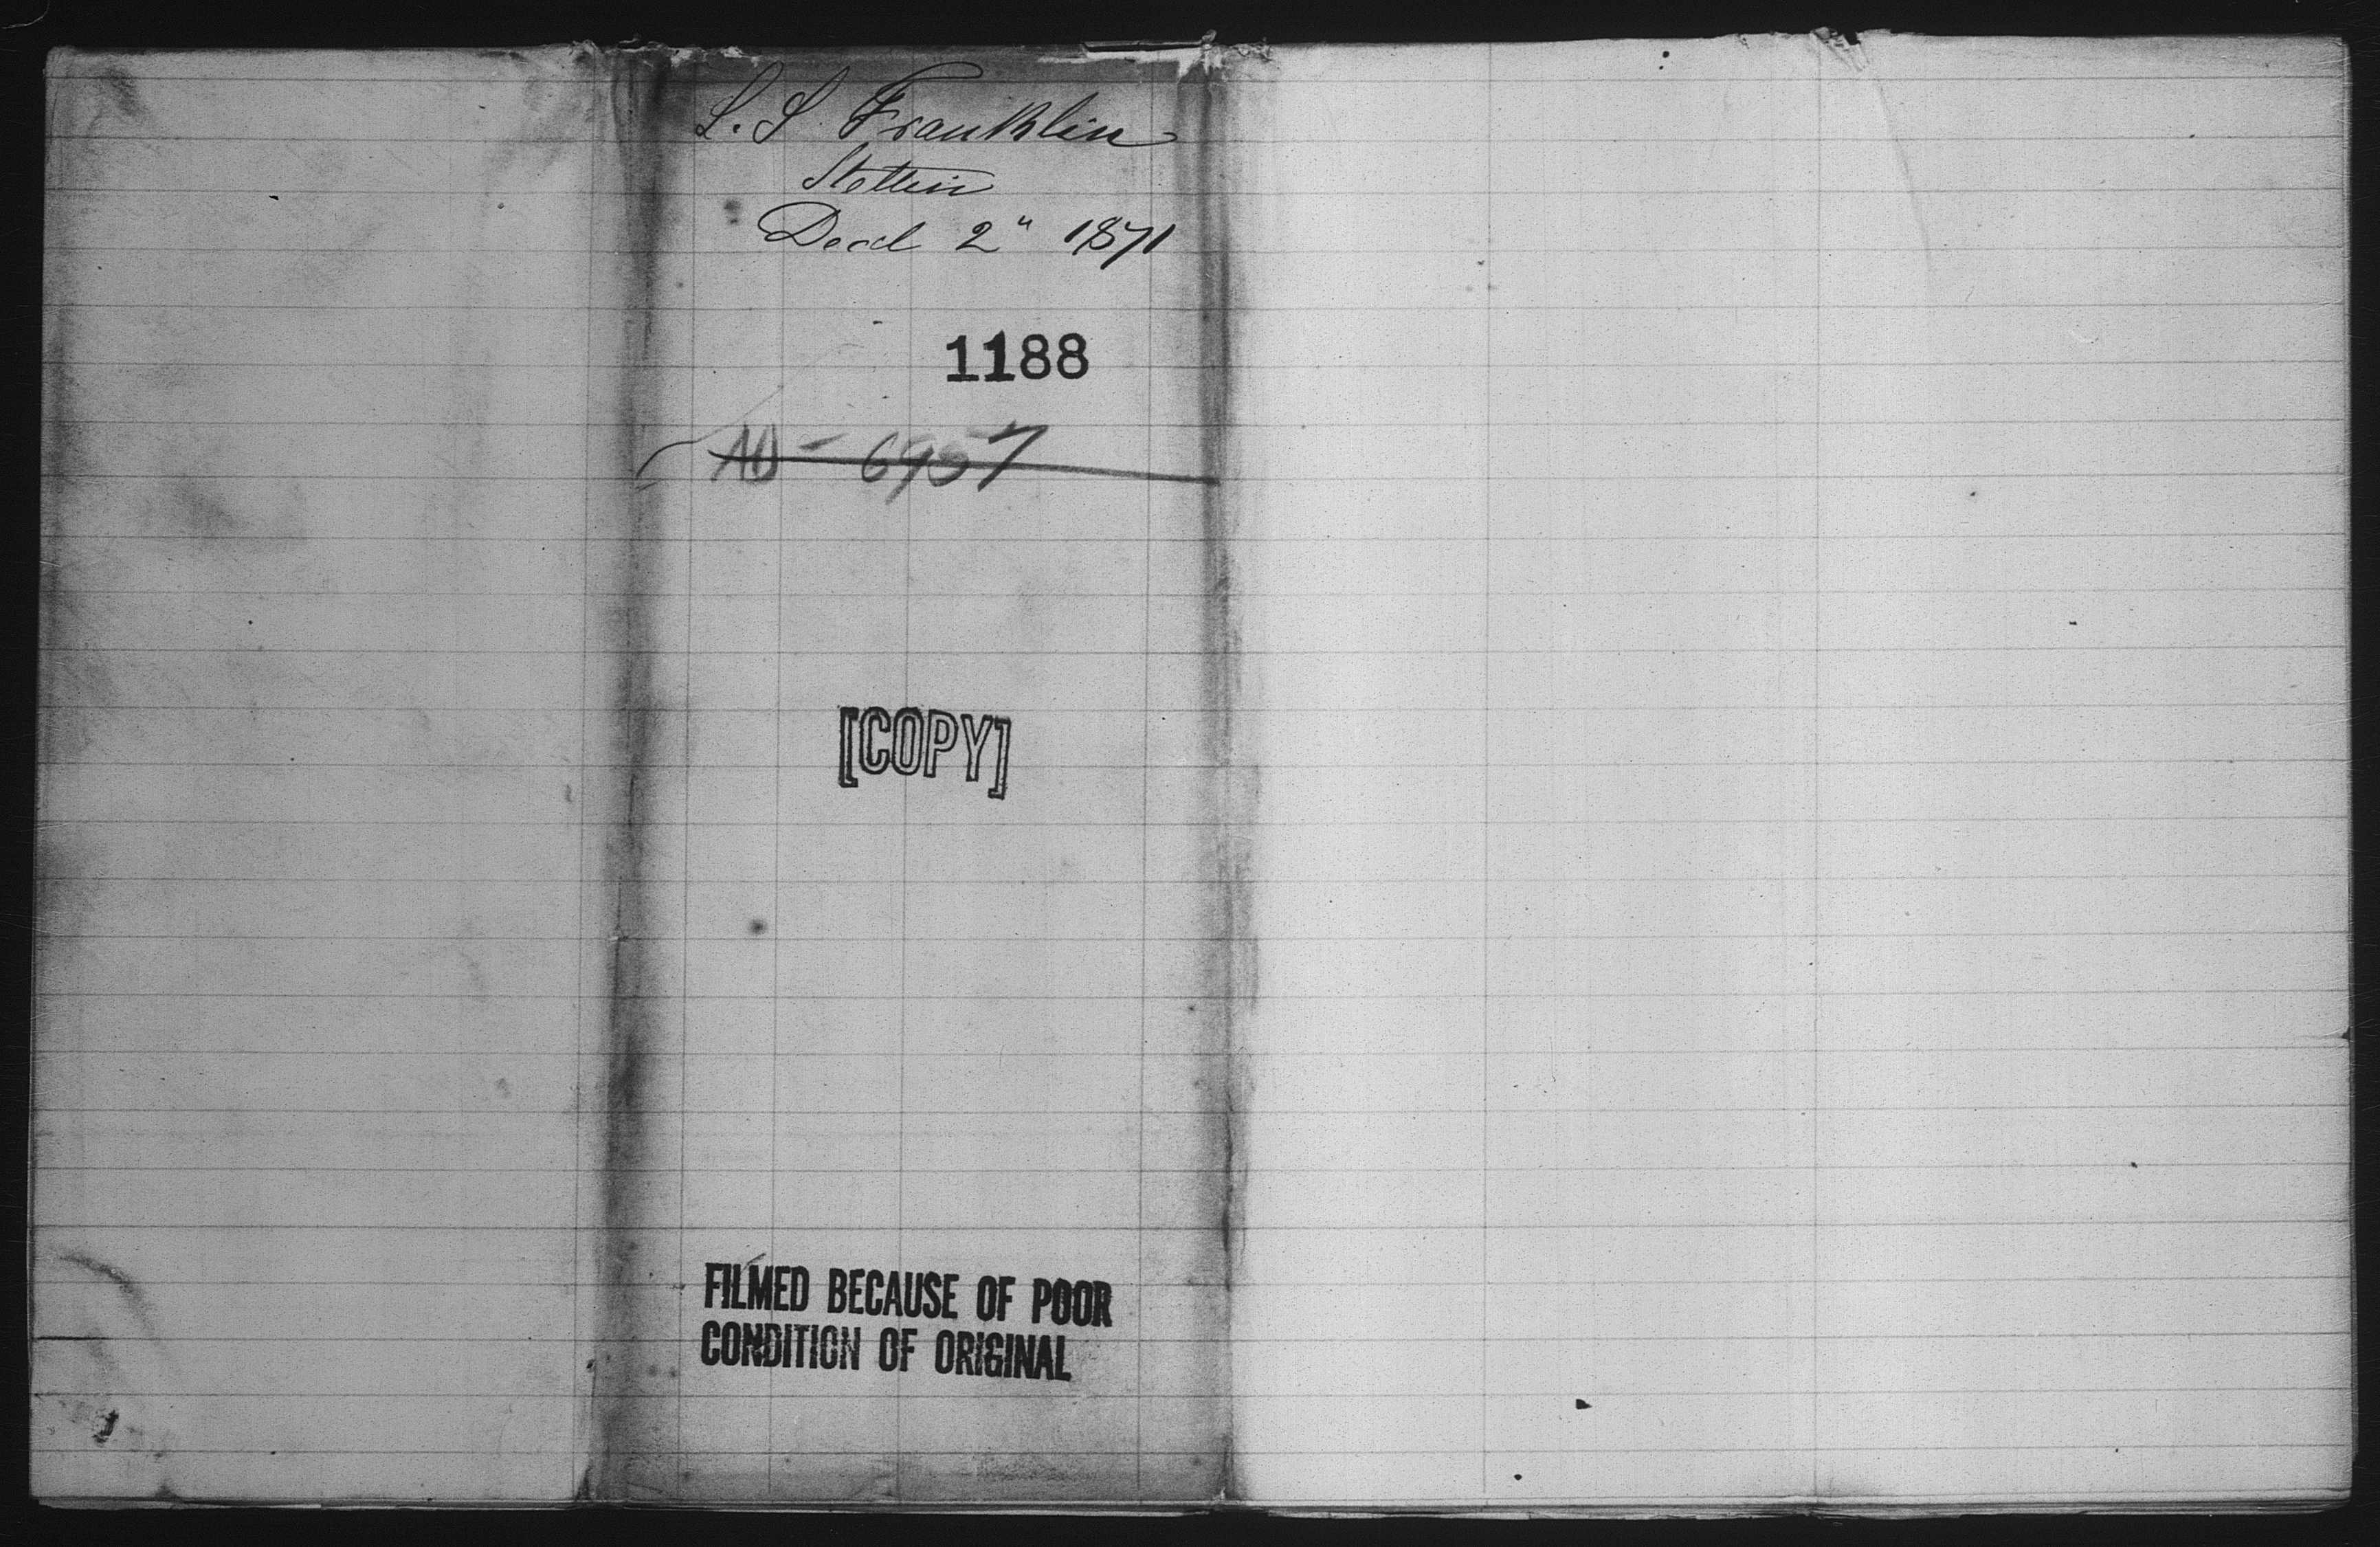 S. S. Franklin
Stettin
Decd 2" 1871
1188
10 - 6957
[COPY]
FILMED BECAUSE OF POOR
CONDITION OF ORIGINAL